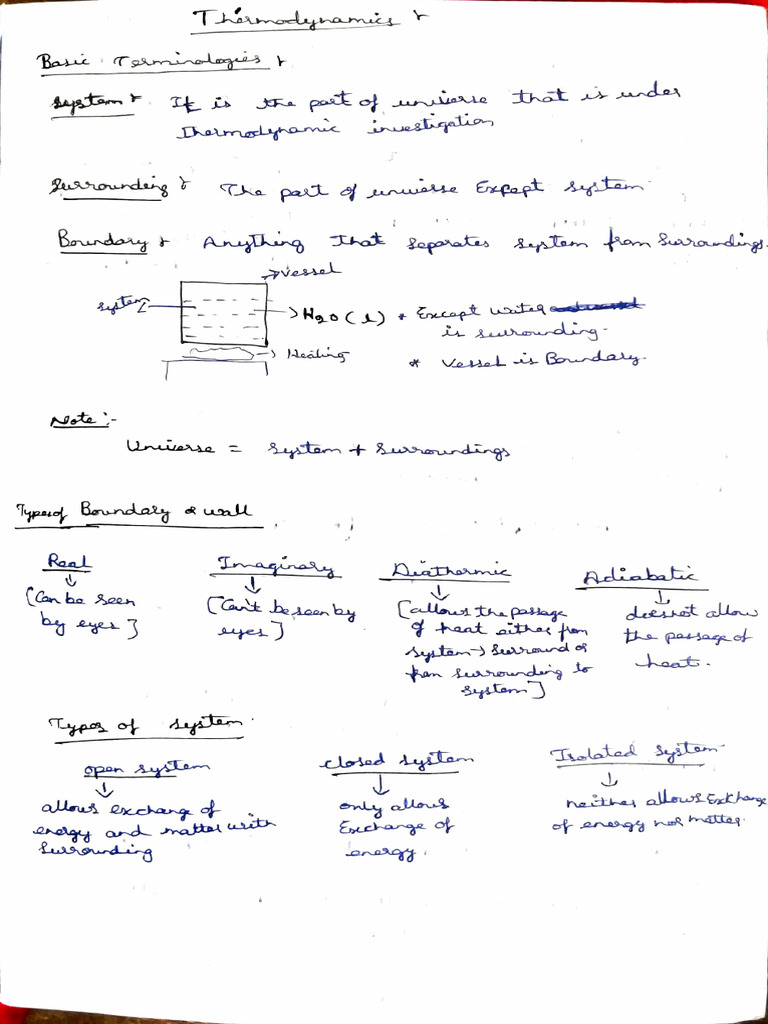 Thermodynamics :-
Basic Terminologies :-
System :- It is the part of universe that is under
Thermodynamic investigation
Surrounding :- The part of universe Except system
Boundary :- Anything That separates system from Surroundings.
→ vessel
system
→ H2O(l)
* Except water
is surrounding.
→ Heating
* Vessel is Boundary.
Note :-
Universe = System + Surroundings
Types of Boundary or wall
Real
[Can be seen
by eyes]
Imaginary
[Can't be seen by
eyes]
Diathermic
[allows the passage
of heat either from
system → surround or
from surrounding to
system]
Adiabatic
does not allow
the passage of
heat.
Types of system
open system
allows exchange of
energy and matter with
Surrounding
closed system
only allows
Exchange of
energy.
Isolated system
neither allows Exchange
of energy nor matter.